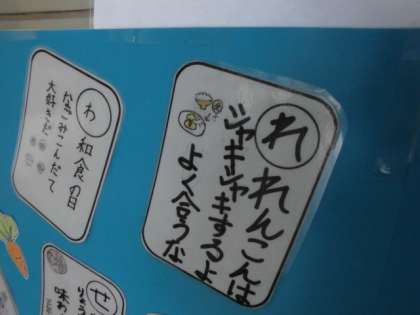 れ
れんこんは
シャキシャキするよ
よく合うな
わ
和食の日
なごみこんだて
大好きだ
せ